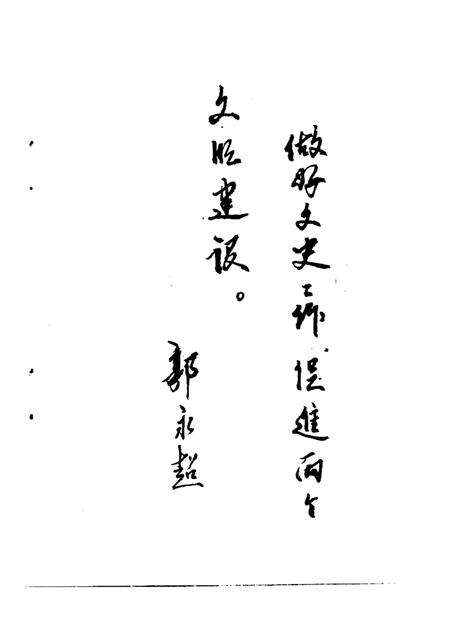 做好文史工作促進两个
文明建设。
郭永超